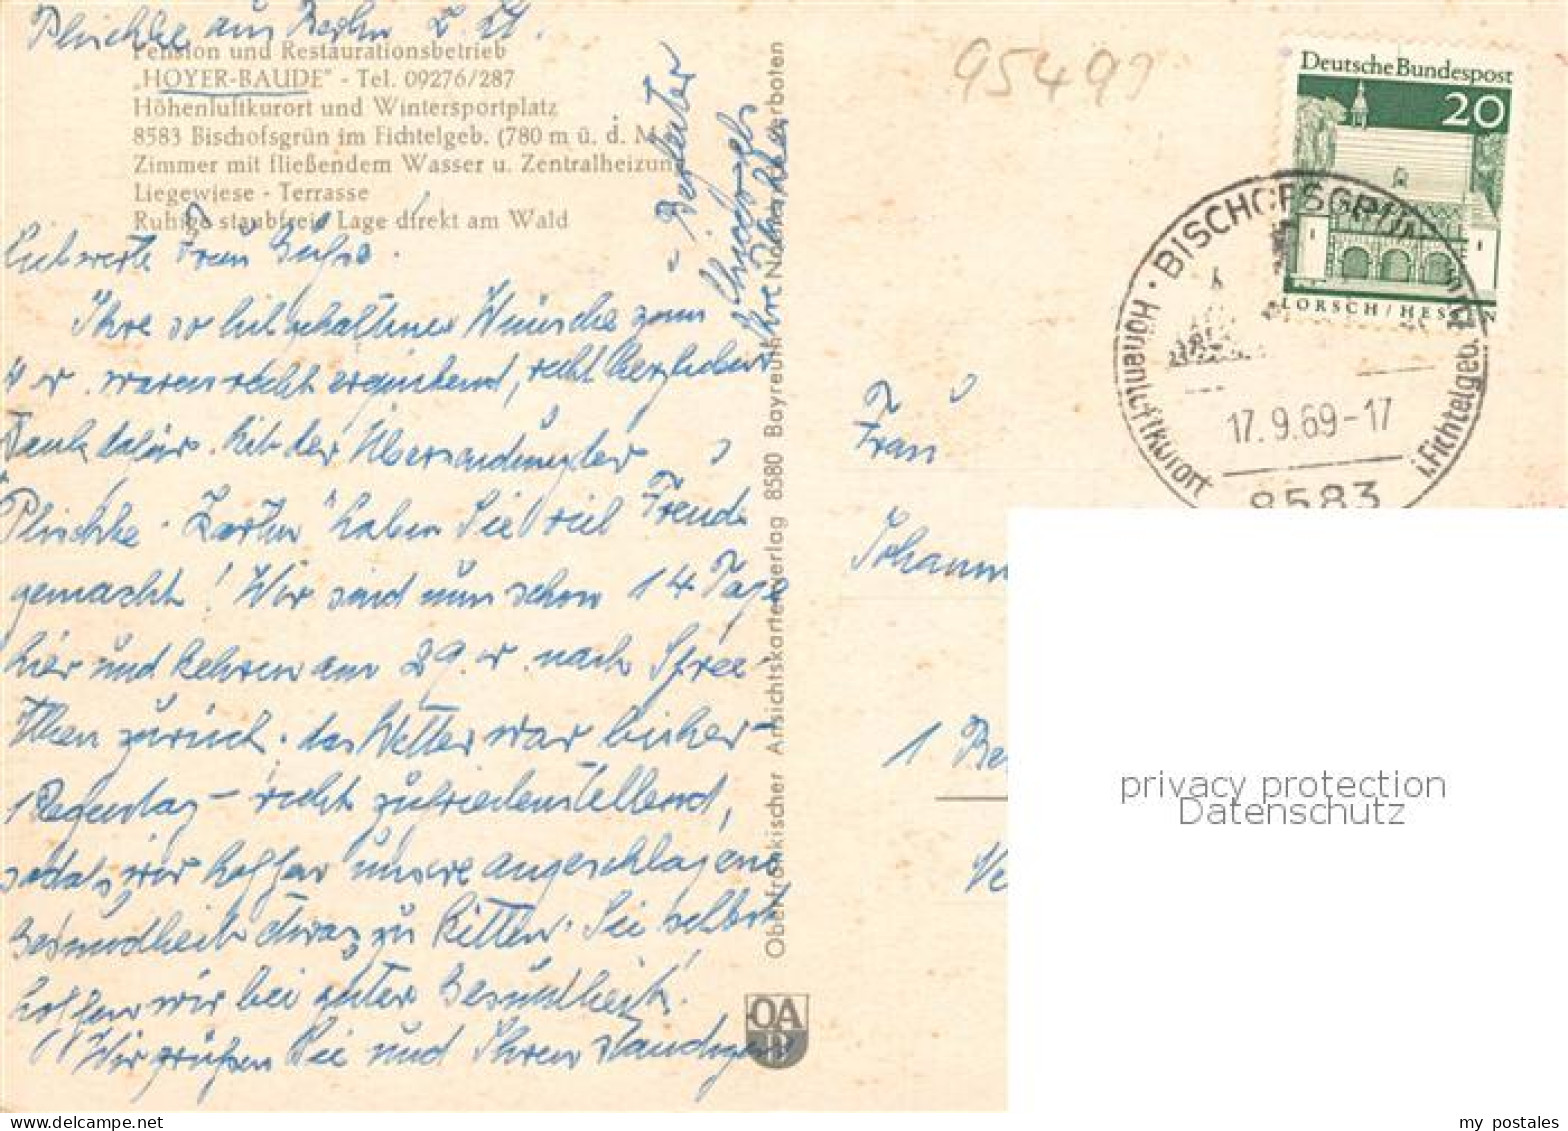 Plischke aus Berlin z. Zt.
Pension und Restaurationsbetrieb
„HOYER-BAUDE" - Tel. 09276/287
Höhenluftkurort und Wintersportplatz
8583 Bischofsgrün im Fichtelgeb. (780 m ü. d. M
Zimmer mit fließendem Wasser u. Zentralheizung
Liegewiese - Terrasse
Ruhige staubfreie Lage direkt am Wald
Liebwerte Frau
Ihre so Wünsche zum
waren recht recht herzlichen
Dank dafür. Mit der Übersendung der
Plischke haben Sie viel Freude
gemacht! Wir sind nun schon 14 Tage
hier und kehren am 29. nach Spree-
Athen zurück. das Wetter war bisher-
1 Regentag - recht zufriedenstellend,
sodass wir hoffen unsere angeschlagene
Gesundheit etwas zu kitten. Sie selbst
hoffen wir bei guter Gesundheit!
Wir grüßen Sie und Ihren
Ihre Plischke
Oberfränkischer Ansichtskartenverlag 8580 Bayreuth Nachdruck verboten
OA
B
95497
Deutsche Bundespost
20
LORSCH/HESSEN
BISCHOFSGRÜN
Höhenluftkurort
i.Fichtelgeb.
17.9.69-17
8583
Frau
Johann
1 Be
privacy protection
Datenschutz
my postales